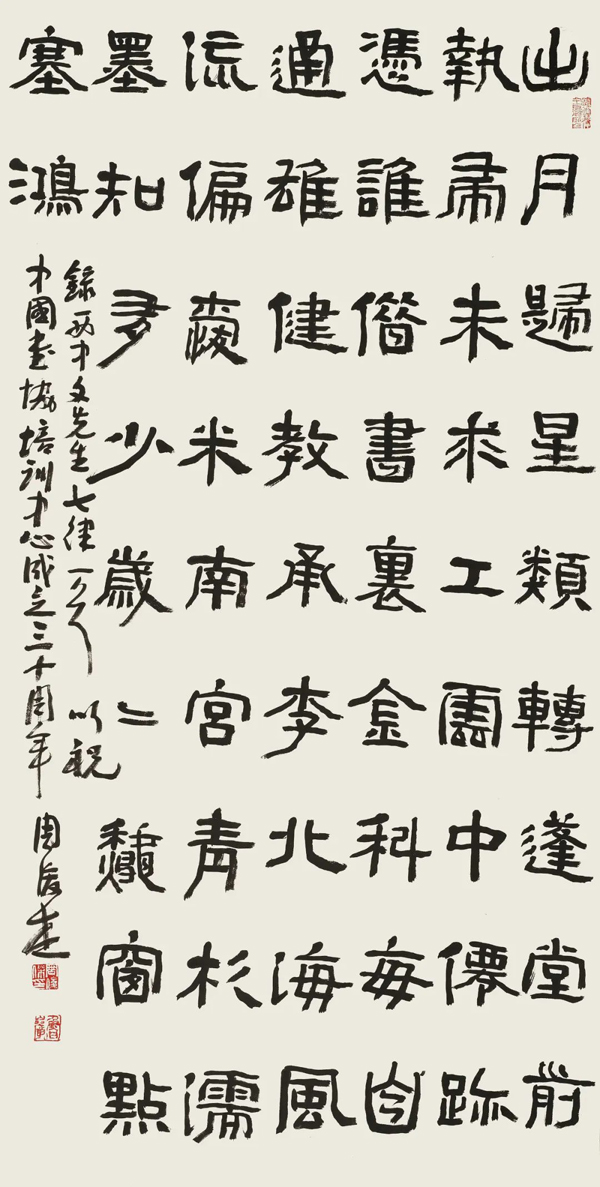 出月歸星類轉蓬堂前
執帚未求工雲中僊跡
憑誰借書裏金科每自
通雄健教承李北海風
流偏愛米南宮青杉濡
墨知多少歲〻穐窗點
塞鴻
錄西中文先生七律一首以祝
中國書協培訓中心成立三十周年 周